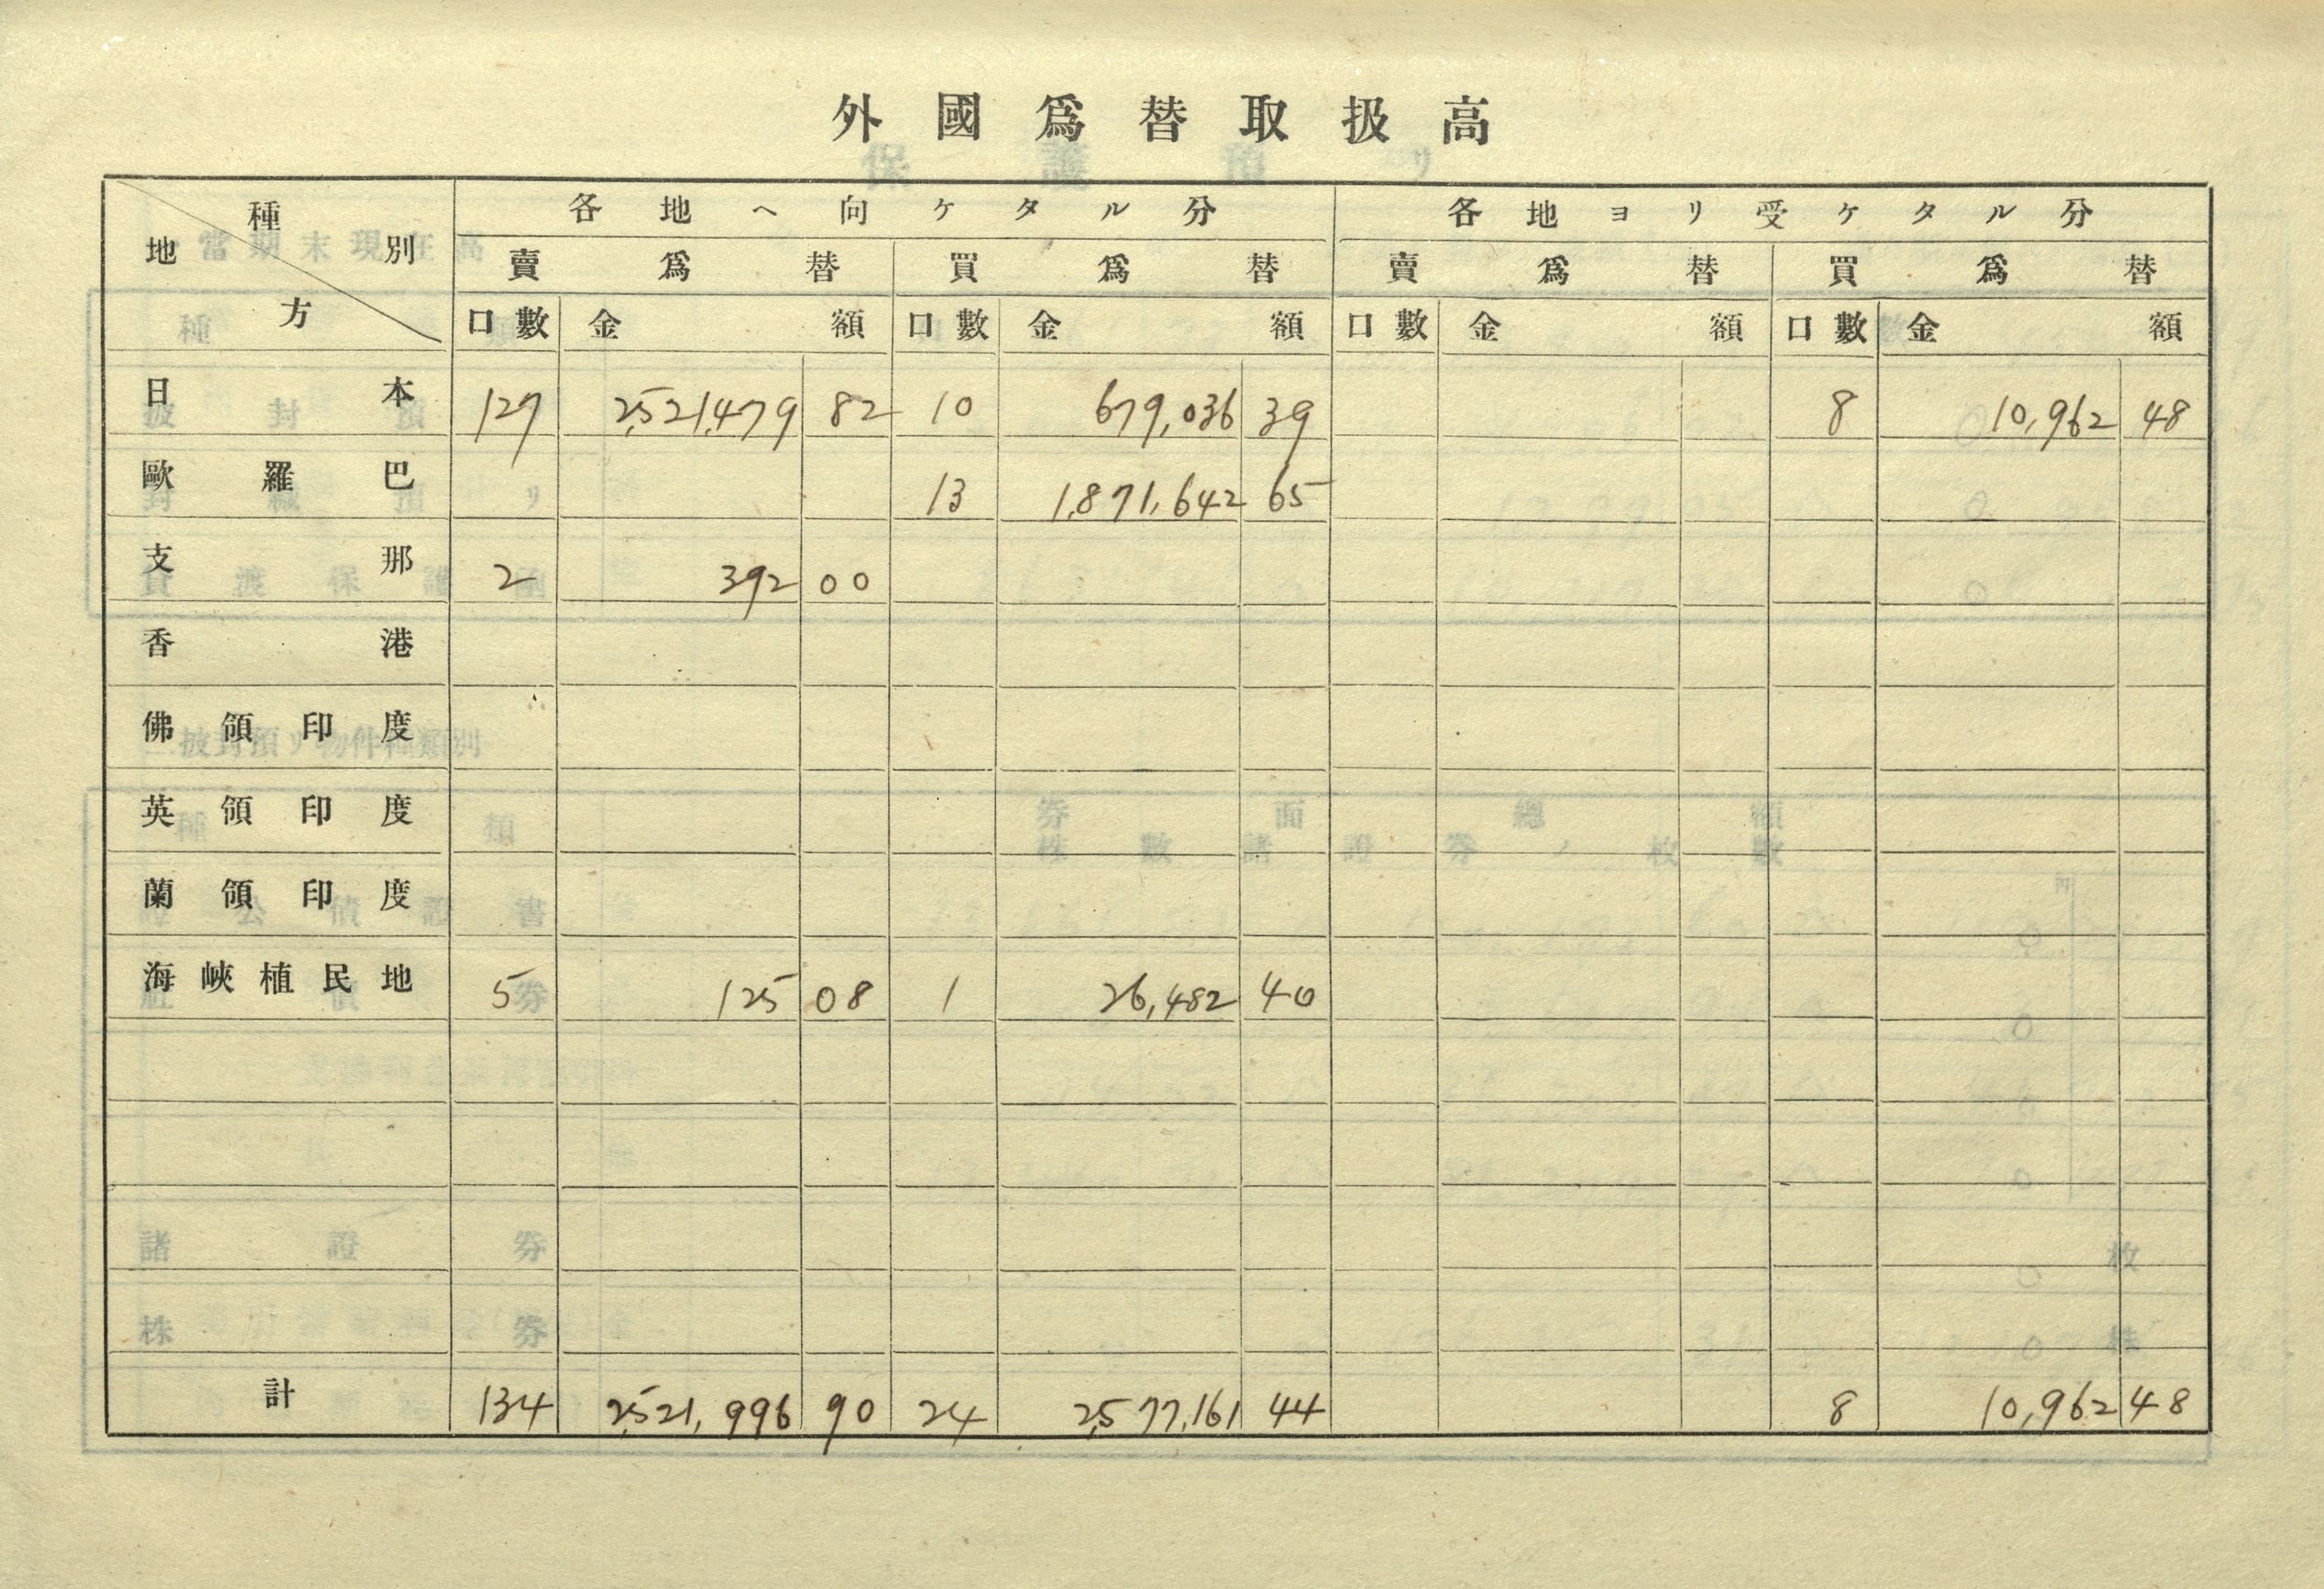 外國爲替取扱高
種別 地方 各地ヘ向ケタル分 各地ヨリ受ケタル分
賣爲替 買爲替 賣爲替 買爲替
口數 金額 口數 金額 口數 金額 口數 金額
日本 127 2,521,479 82 10 679,036 39 8 10,962 48
歐羅巴 13 1,871,642 65
支那 2 392 00
香港
佛領印度
英領印度
蘭領印度
海峽植民地 5 125 08 1 26,482 40
計 134 2,521,996 90 24 2,577,161 44 8 10,962 48